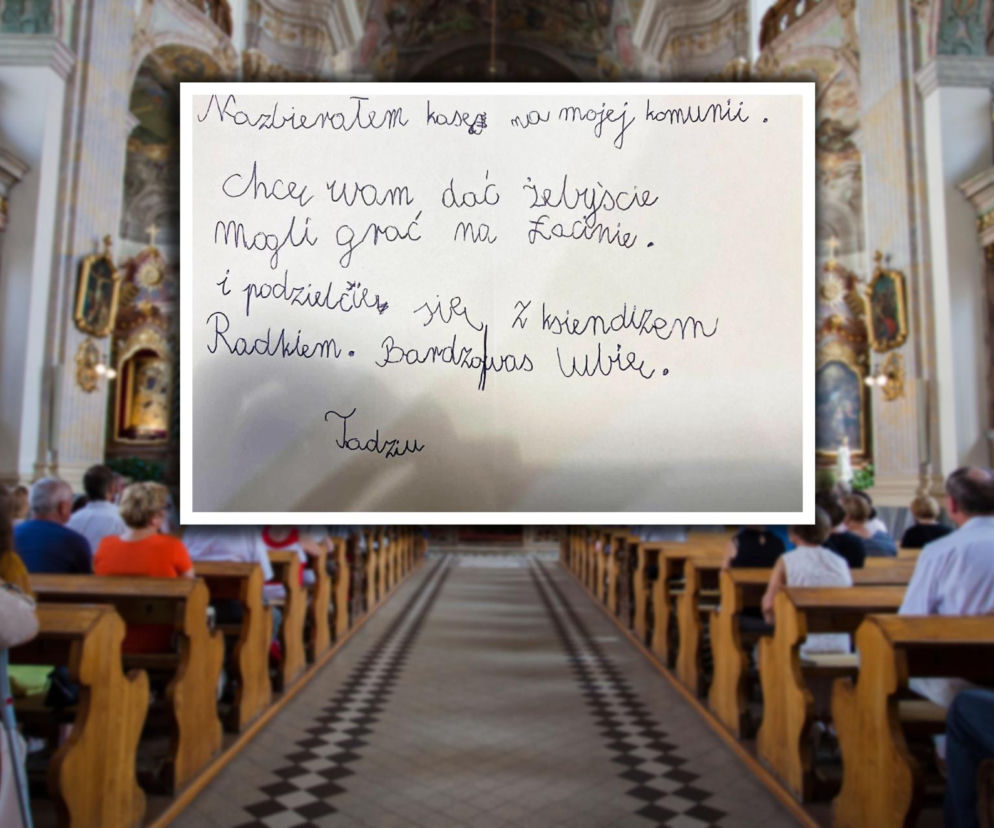 Nazbierałem kasę na mojej komunii.
Chcę wam dać żebyście
mogli grać na Łacinie.
i podzielcie się z ksiendizem
Radkiem. Bardzo was lubię.
Tadziu